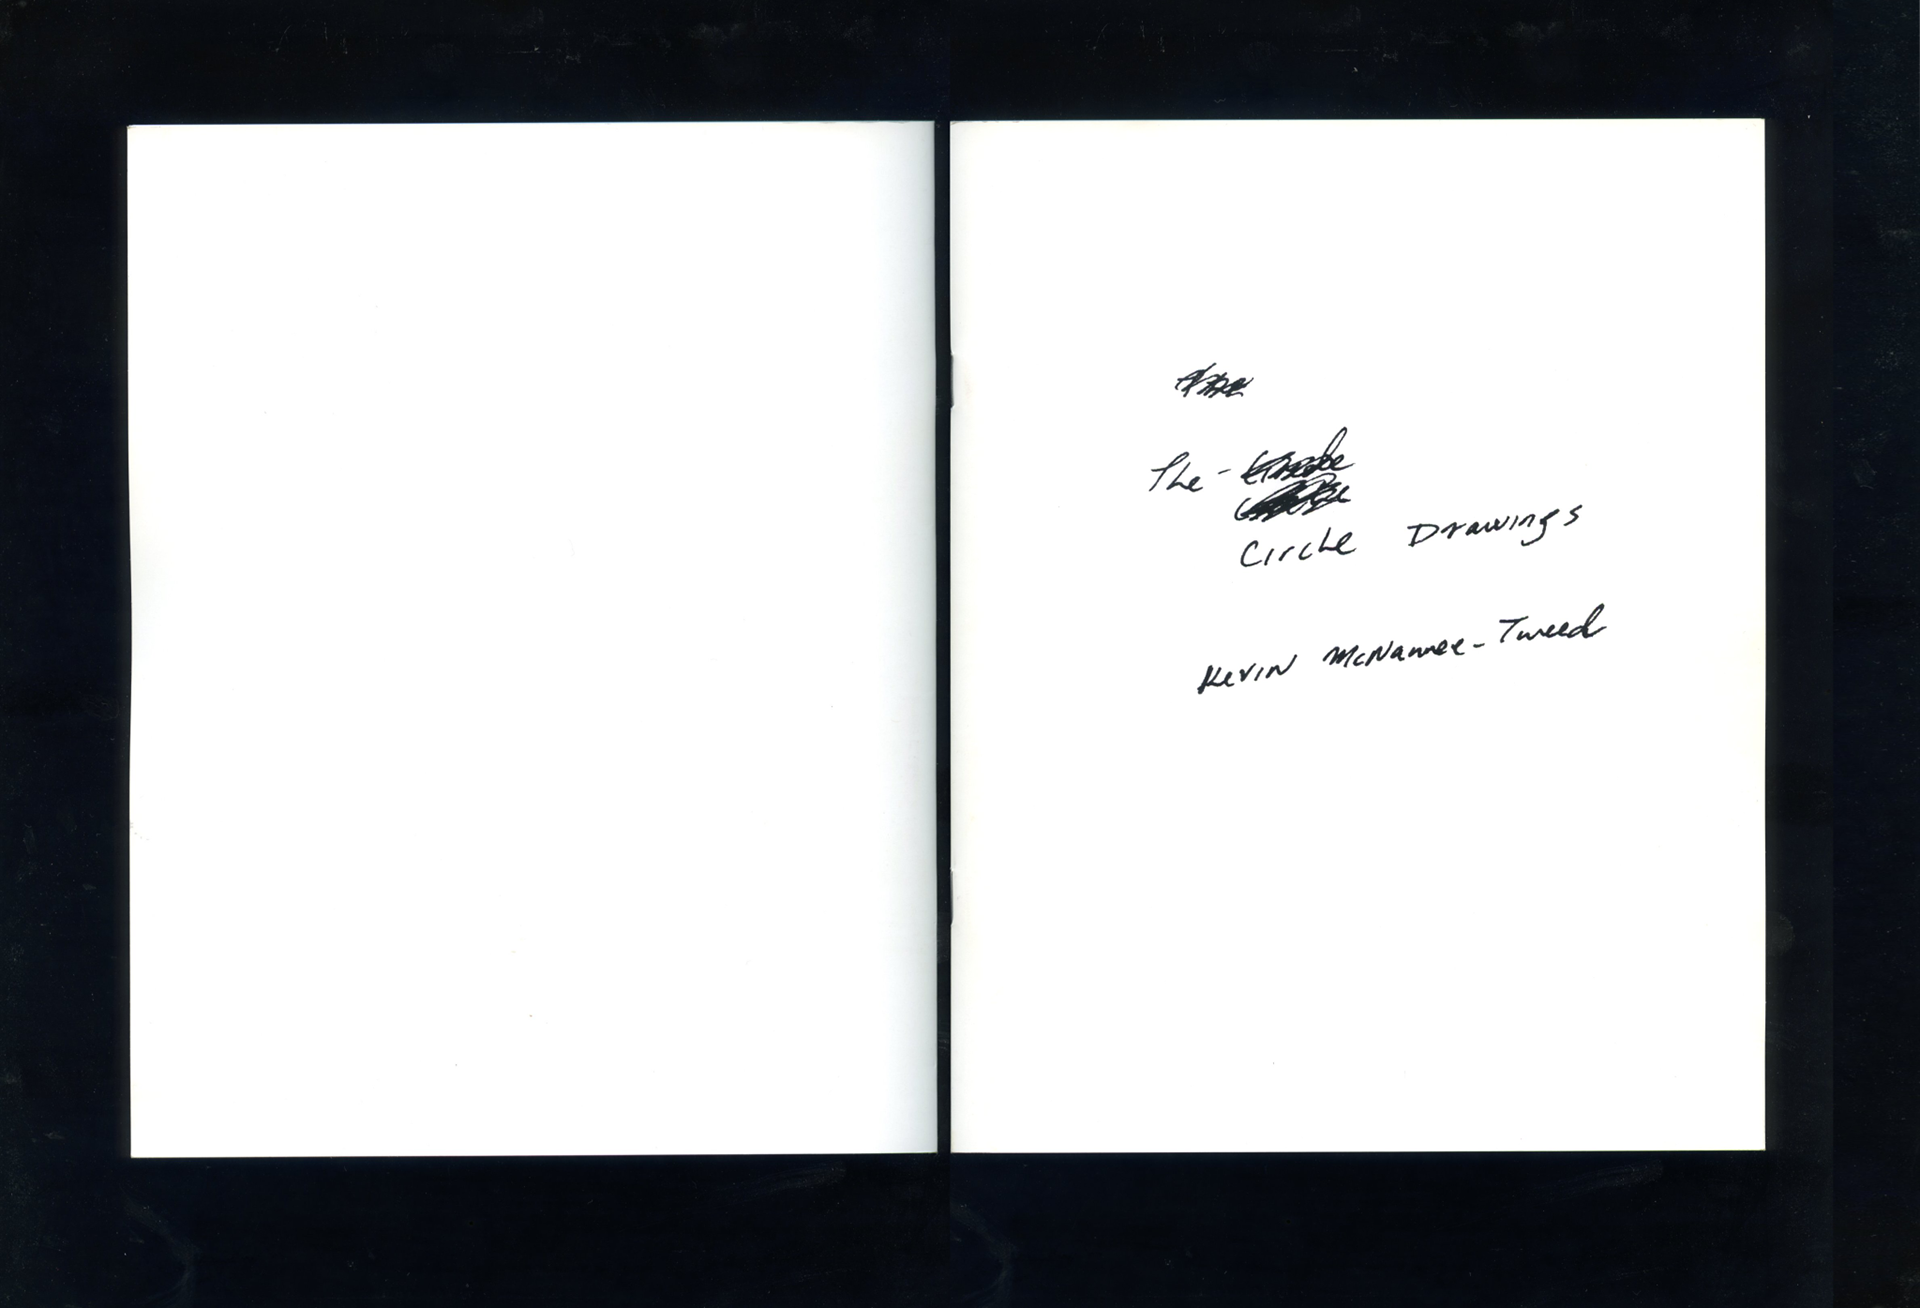 The -
Circle Drawings
Kevin McNamee-Tweed